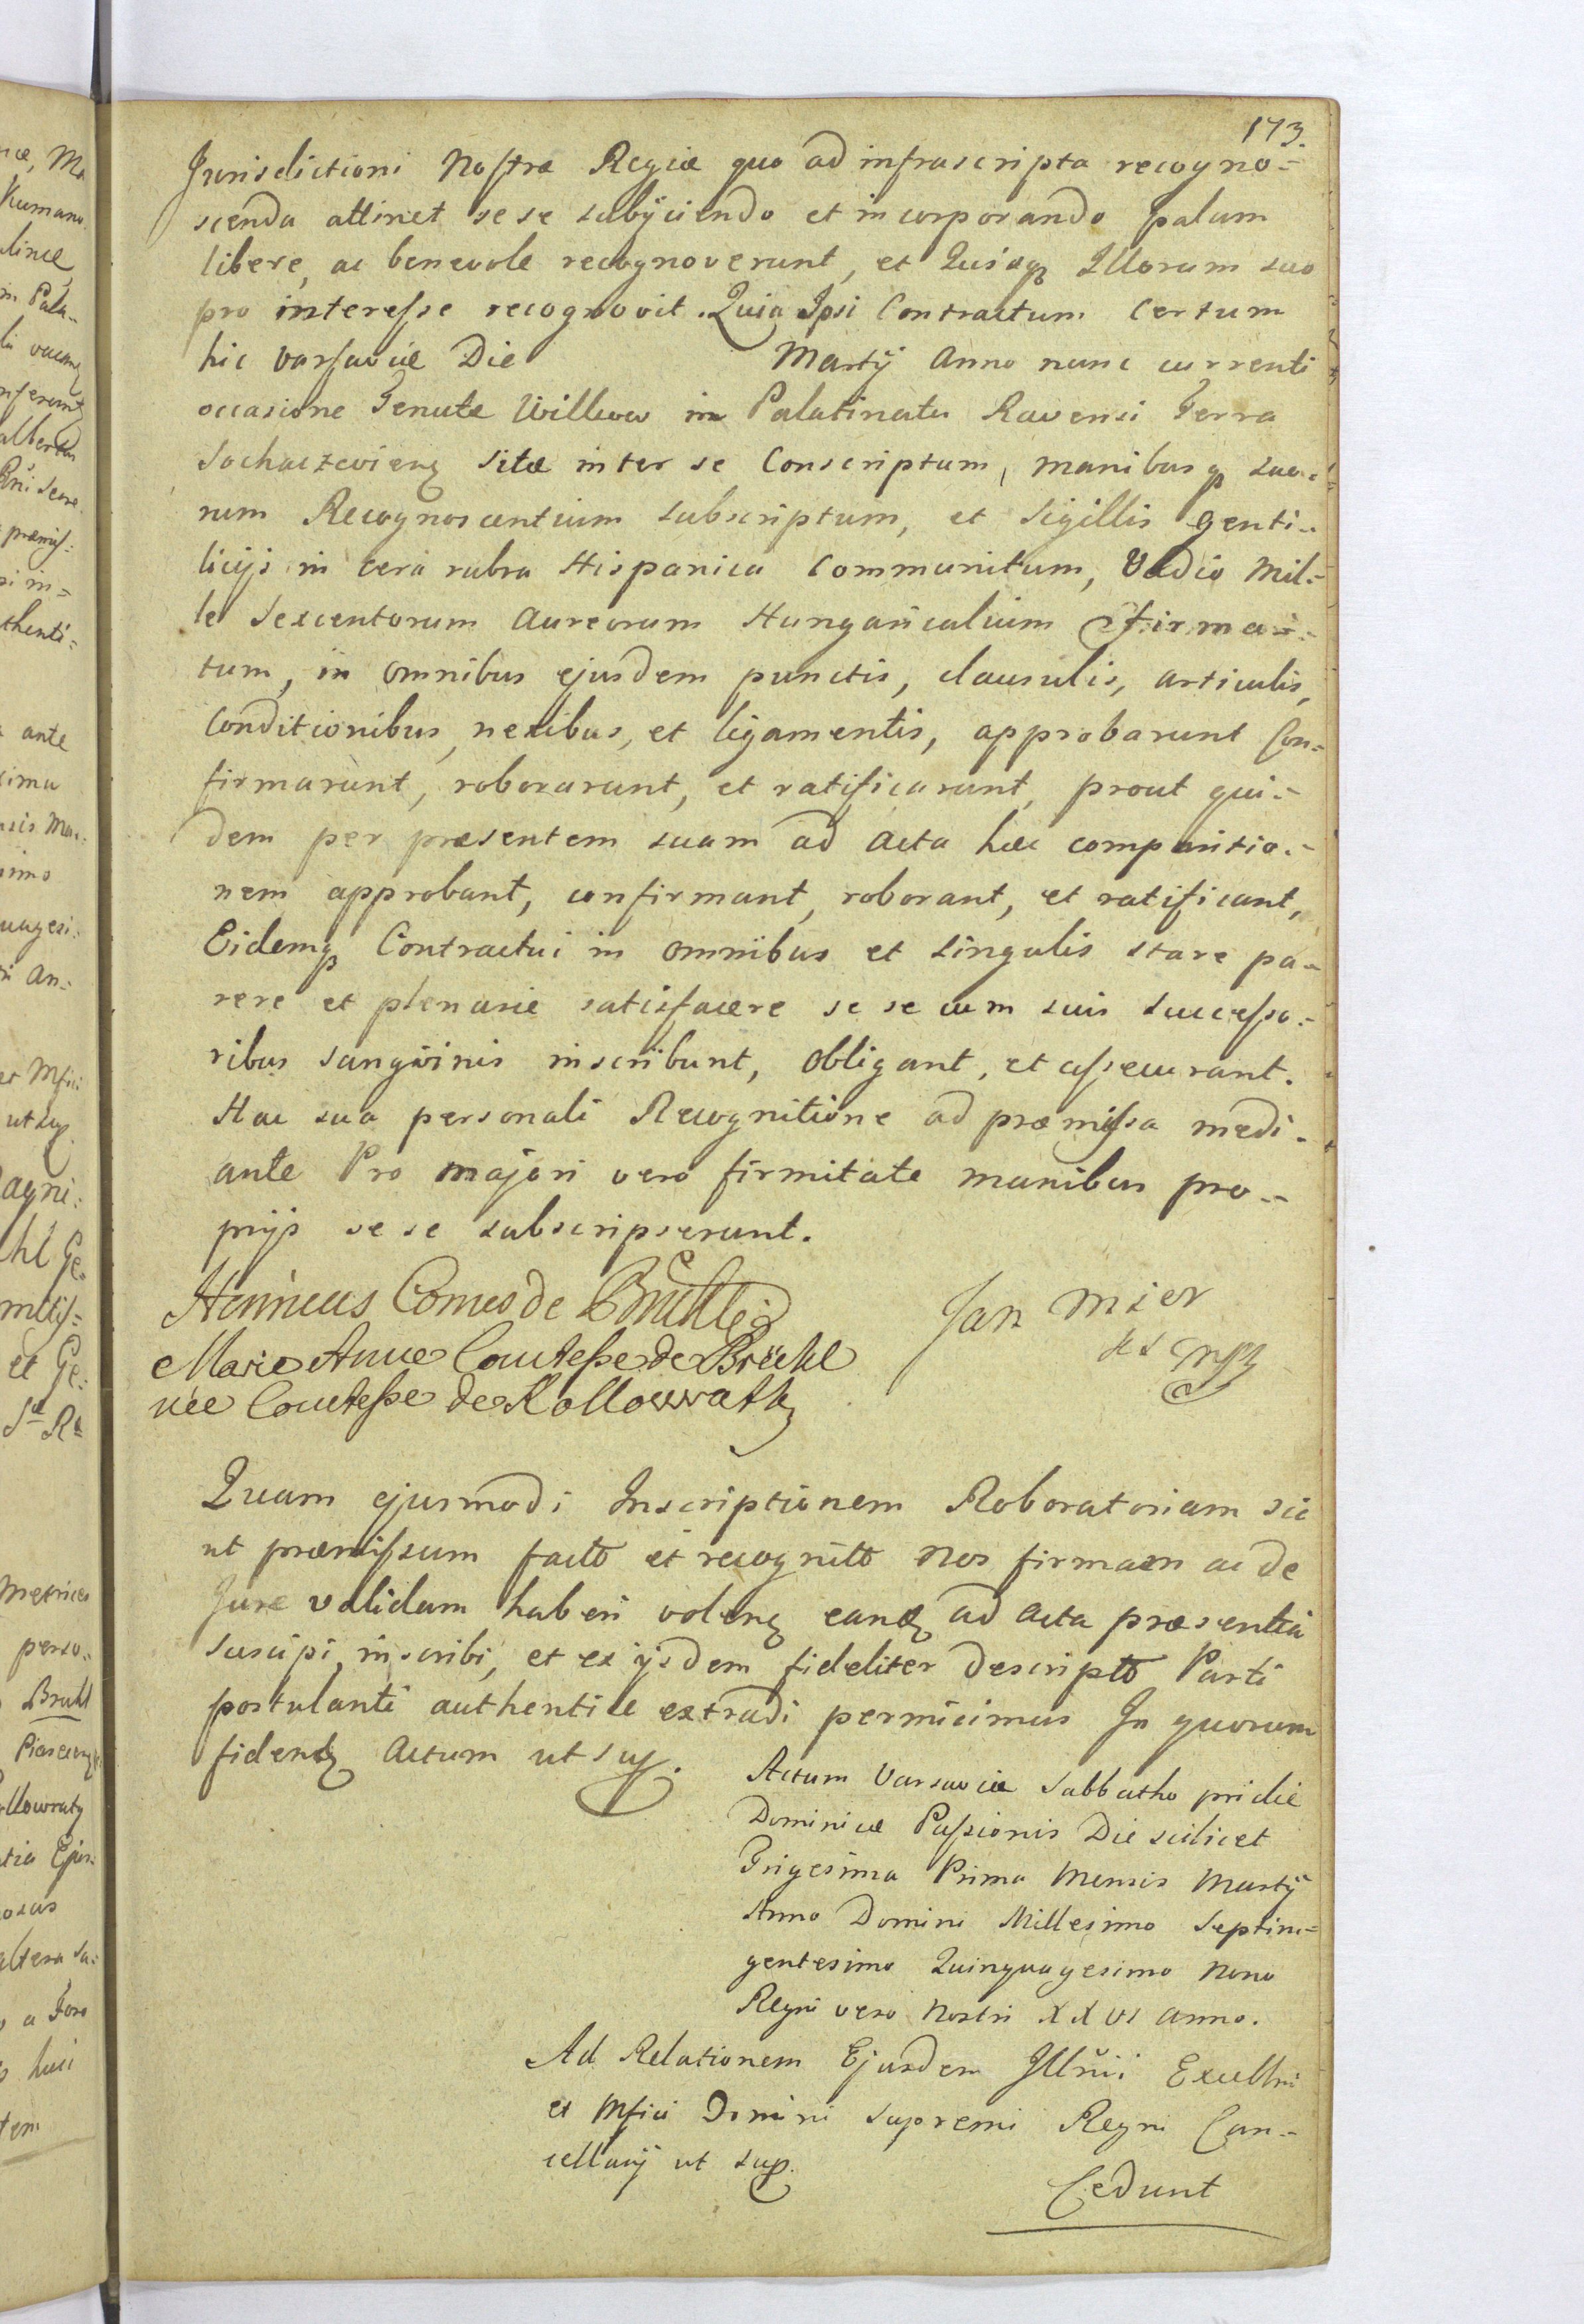 173.
Jurisdictioni Nostræ Regiæ quo ad infrascripta recogno=
scenda attinet sese subÿciendo et incorporando palam
libere, ac benevole recognoverunt, et Quisqꝫ Illorum suo
pro interesse recognovit. Quia Ipsi Contractum certum
hic Varsaviæ Die Martÿ Anno nunc currenti
occasione Tenutæ Willwow in Palatinatu Ravensi Terra
Sochaczeviens sitæ inter se Conscriptum, manibusqꝫ sua=
rum Recognoscentium subscriptum, et Sigillis genti=
licÿs in cera rubra Hispanica Communitum, Vadio Mil=
le Sexcentorum Aureorum Hungaricalium firma=
tum, in omnibus ejusdem punctis, clausulis, articulis,
Conditionibus, nexibus, et ligamentis, approbarunt Con=
firmarunt, roborarunt, et ratificarunt, prout qui=
dem per præsentem suam ad Acta hæc comparitio=
nem approbant, confirmant, roborant, et ratificant,
Eidemqꝫ Contractui in omnibus et singulis stare pa=
rere et plenarie satisfacere sese cum suis successo=
ribus sangvinis inscribunt, obligant, et assecurant.
Hac sua personali Recognitione ad præmissa medi=
ante Pro majori vero firmitate manibus pro=
prijs sese subscripserunt.
Henricus Comes de Brühl
Jan Mier
Marie Anne Comtesse de Brüehl
née Comtesse de Kollowrath
Quam ejusmodi Inscriptionem Roboratoriam sic
ut præmissum facto et recognito Nos firmam ac de
Jure validam haberi volen eand ad Acta præsentia
suscipi, inscribi, et ex ÿsdem fideliter descripto Parti
postulanti authentice extradi permicimus In quorum
fidem Actum ut sup.
Actum Varsaviæ Sabbatho pridie
Dominicæ Passionis Die scilicet
Trigesima Prima Mensis Martÿ
Anno Domini Millesimo Septin=
gentesimo Quinquagesimo Nono
Regni vero Nostri XXVI Anno.
Ad Relationem Ejusdem Illmi Excellmi
et Mfici Domini Supremi Regni Can=
cellarij ut sup.
Cedunt